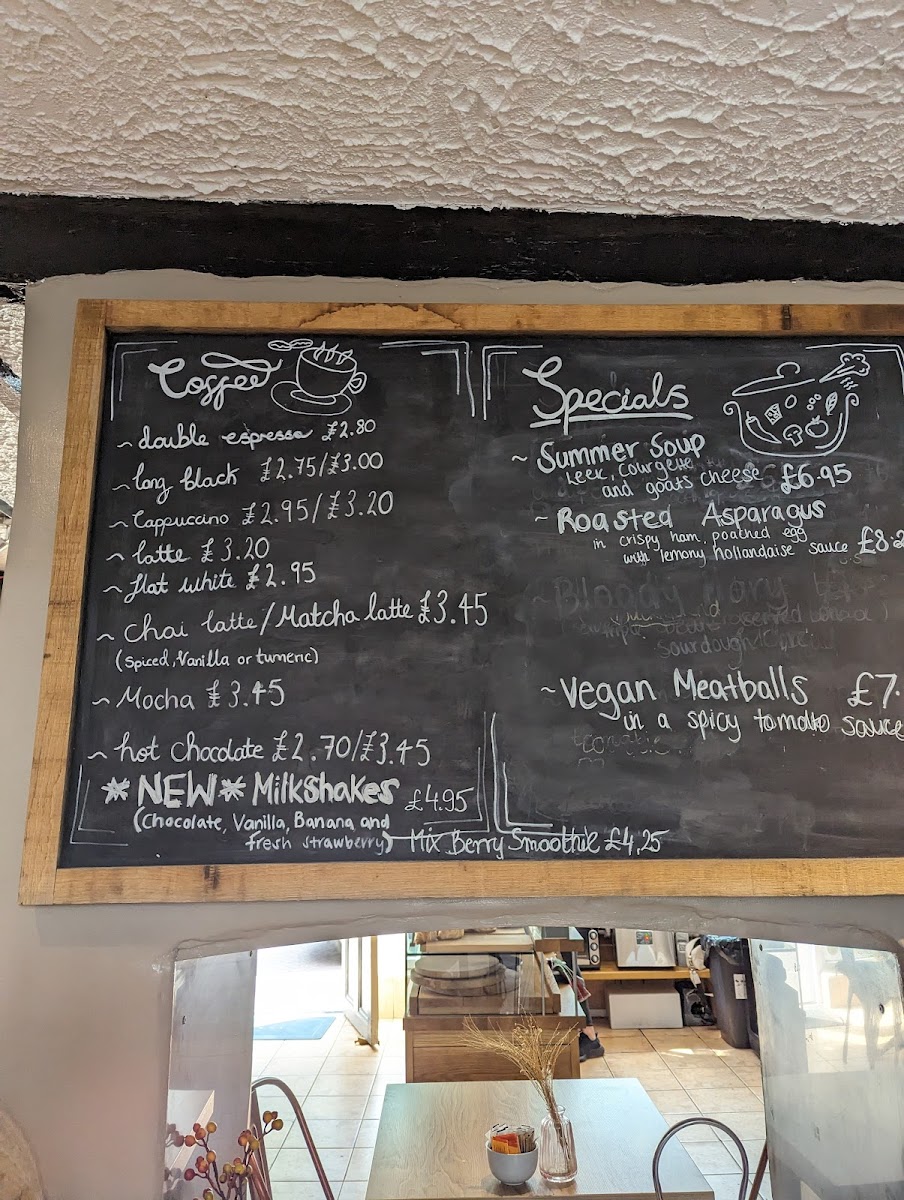 Coffee
~ double espresso £2.80
~ long black £2.75/£3.00
~ Cappuccino £2.95/£3.20
~ latte £3.20
~ flat white £2.95
~ Chai latte/Matcha latte £3.45
(Spiced, Vanilla or tumeric)
~ Mocha £3.45
~ hot chocolate £2.70/£3.45
*NEW* Milkshakes £4.95
(Chocolate, Vanilla, Banana and
fresh strawberry)
Mix Berry Smoothie £4,25
Specials
~ Summer Soup
Leek, Courgette
and goats cheese £6.95
~ Roasted Asparagus
in crispy ham, poached egg
with lemony hollandaise sauce £8.2
~ Bloody Mary
sourdough
~ Vegan Meatballs £7.
in a spicy tomato sauce